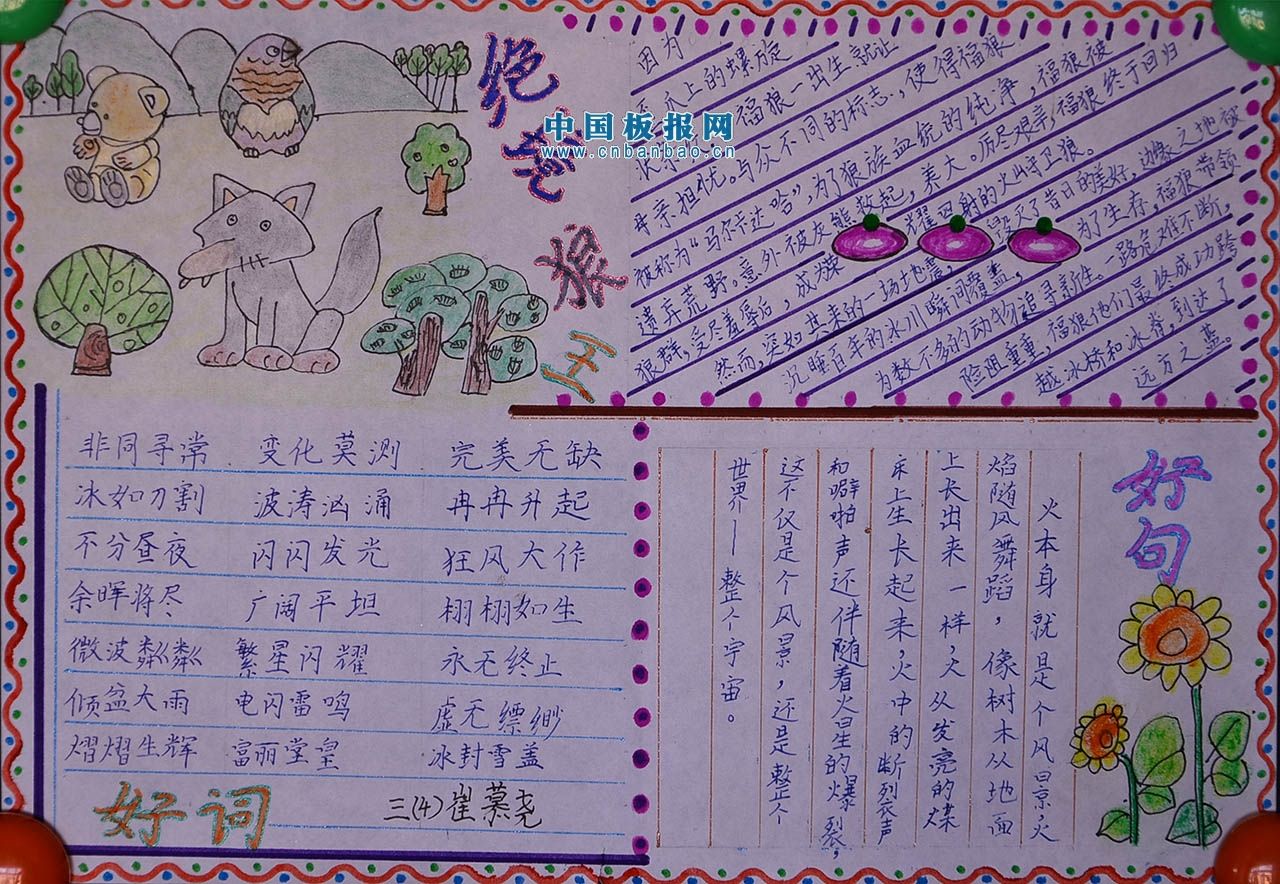 绝境狼王
中国板报网
www.cnbanbao.cn
因为
爪上的螺旋
福狼一出生就让
母亲担忧。与众不同的标志，使得福狼
被称为“马尔卡达哈”，为了狼族血统的纯净，福狼被
遗弃荒野。意外被灰熊救起，养大。历尽艰辛，福狼终于回归
狼群，受尽羞辱后，成
耀四射的火山守卫狼。
然而，突如其来的一场地震，
毁灭了昔日的美好，边缘之地被
沉睡百年的冰川瞬间覆盖，
为了生存，福狼带领
为数不多的动物追寻新生。一路灾难不断，
险阻重重，福狼他们最终成功跨
越冰桥和冰脊，到达了
远方之蓝。
非同寻常 变化莫测 完美无缺
冰如刀割 波涛汹涌 冉冉升起
不分昼夜 闪闪发光 狂风大作
余晖将尽 广阔平坦 栩栩如生
微波粼粼 繁星闪耀 永无终止
倾盆大雨 电闪雷鸣 虚无缥缈
熠熠生辉 富丽堂皇 冰封雪盖
好词
三(4)崔慕尧
好句
火本身就是个风景，火
焰随风舞蹈，像树木从地面
上长出来一样，火从发亮的煤
床上生长起来，火中的断裂声
和噼啪声还伴随着火星的爆裂，
这不仅是个风景，还是整个
世界—整个宇宙。